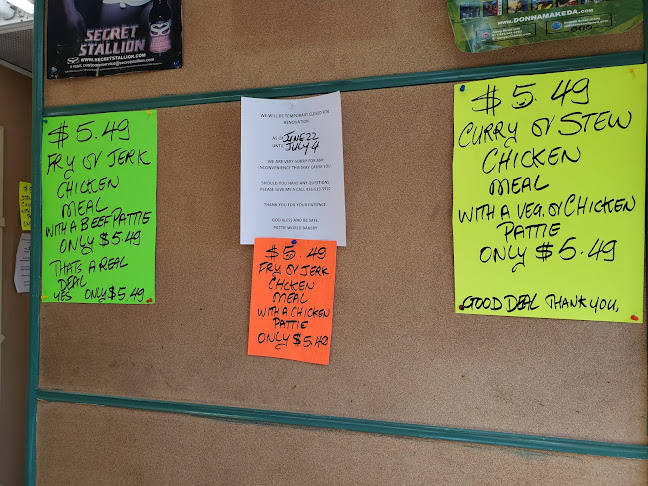 SECRET
STALLION
WWW.SECRETSTALLION.COM
WWW.DONNAMAKEDA.COM
$5.49
FRY or JERK
CHICKEN
MEAL
WITH A BEEF PATTIE
ONLY $5.49
THATS A REAL
DEAL
YES ONLY $5.49
WE WILL BE TEMPORARY CLOSED FOR
RENOVATION.
AS OF JUNE 22
UNTIL JULY 4
WE ARE VERY SORRY FOR ANY
INCONVENIENCE THIS MAY CAUSE YOU.
SHOULD YOU HAVE ANY QUESTIONS
PLEASE GIVE ME A CALL
THANK YOU FOR YOUR PATIENCE.
GOD BLESS AND BE SAFE.
PATTIE WORLD BAKERY
$5.49
FRY or JERK
CHCKEN
MEAL
WITH A CHICKEN
PATTIE
ONLY $5.49
$5.49
CURRY or STEW
CHICKEN
MEAL
WITH A VEG. or CHICKEN
PATTIE
ONLY $5.49
GOOD DEAL THANK YOU,